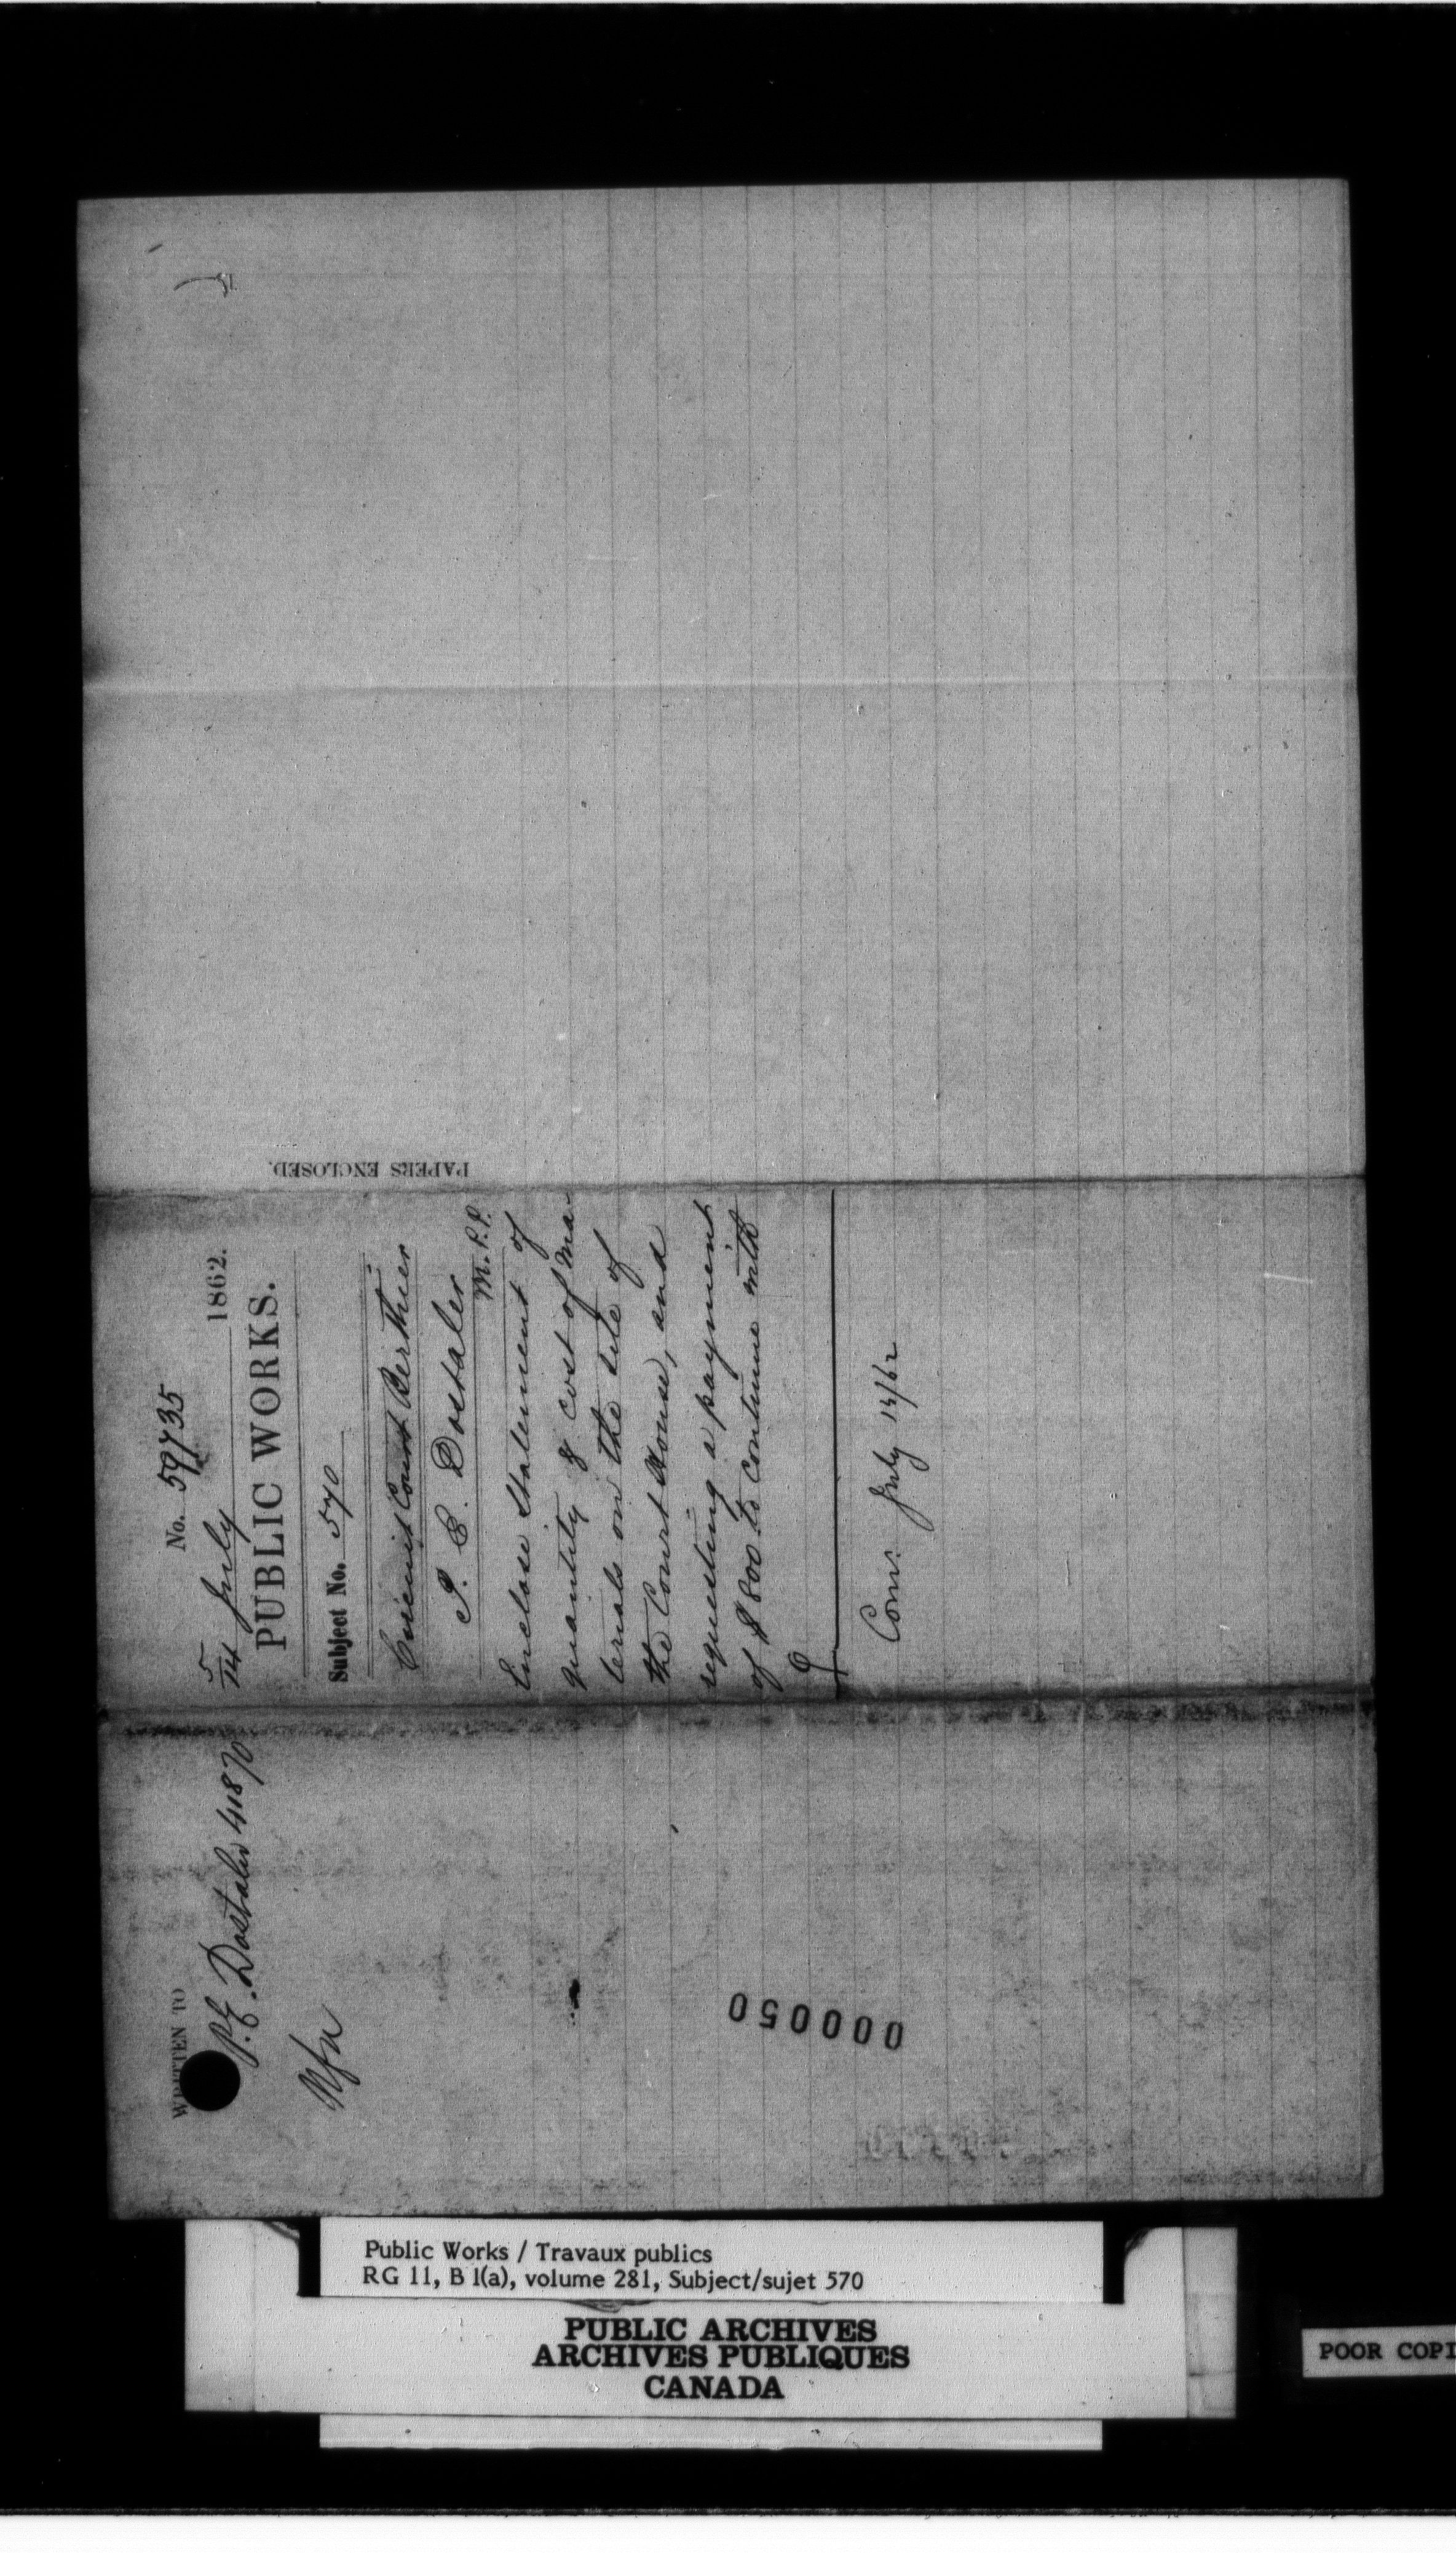 No. 59735
5/14 July 1862.
PUBLIC WORKS.
Subject No. 570
Circuit Court Berthier
P. E. Dostaler
M.P.P.
Enclose Statement of
quantity & cost of ma-
terials on the site of
the Court House, and
requesting a payment
of $800 to continue with
Com. July 14/62
PAPERS ENCLOSED.
WRITTEN TO
P.E. Dostaler 41870
000050
Public Works / Travaux publics
RG 11, B 1(a), volume 281, Subject/sujet 570
PUBLIC ARCHIVES
ARCHIVES PUBLIQUES
CANADA
POOR COPI